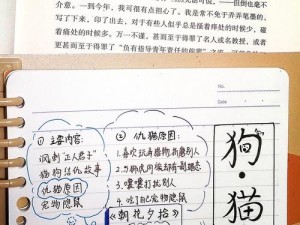 介意。一到今年，我可很有点担心了。我是常不免于弄弄笔墨的，
写了下来，印了出去，对于有些人似乎总是搔着痒处的时候少，碰
着痛处的时候多。万一不谨，甚而至于得罪了名人或名教授，或者
更甚而至于得罪了“负有指导青年责任的前辈”之流，可就
① 主要内容：
讽刺“正人君子”
猫狗结仇故事
仇猫原因
宠物隐鼠
② 仇猫原因：
1.喜欢玩弄猎物折磨别人
3.嗥嗥打扰别人
4.吃了自己宠物隐鼠
《朝花夕拾》
狗·猫